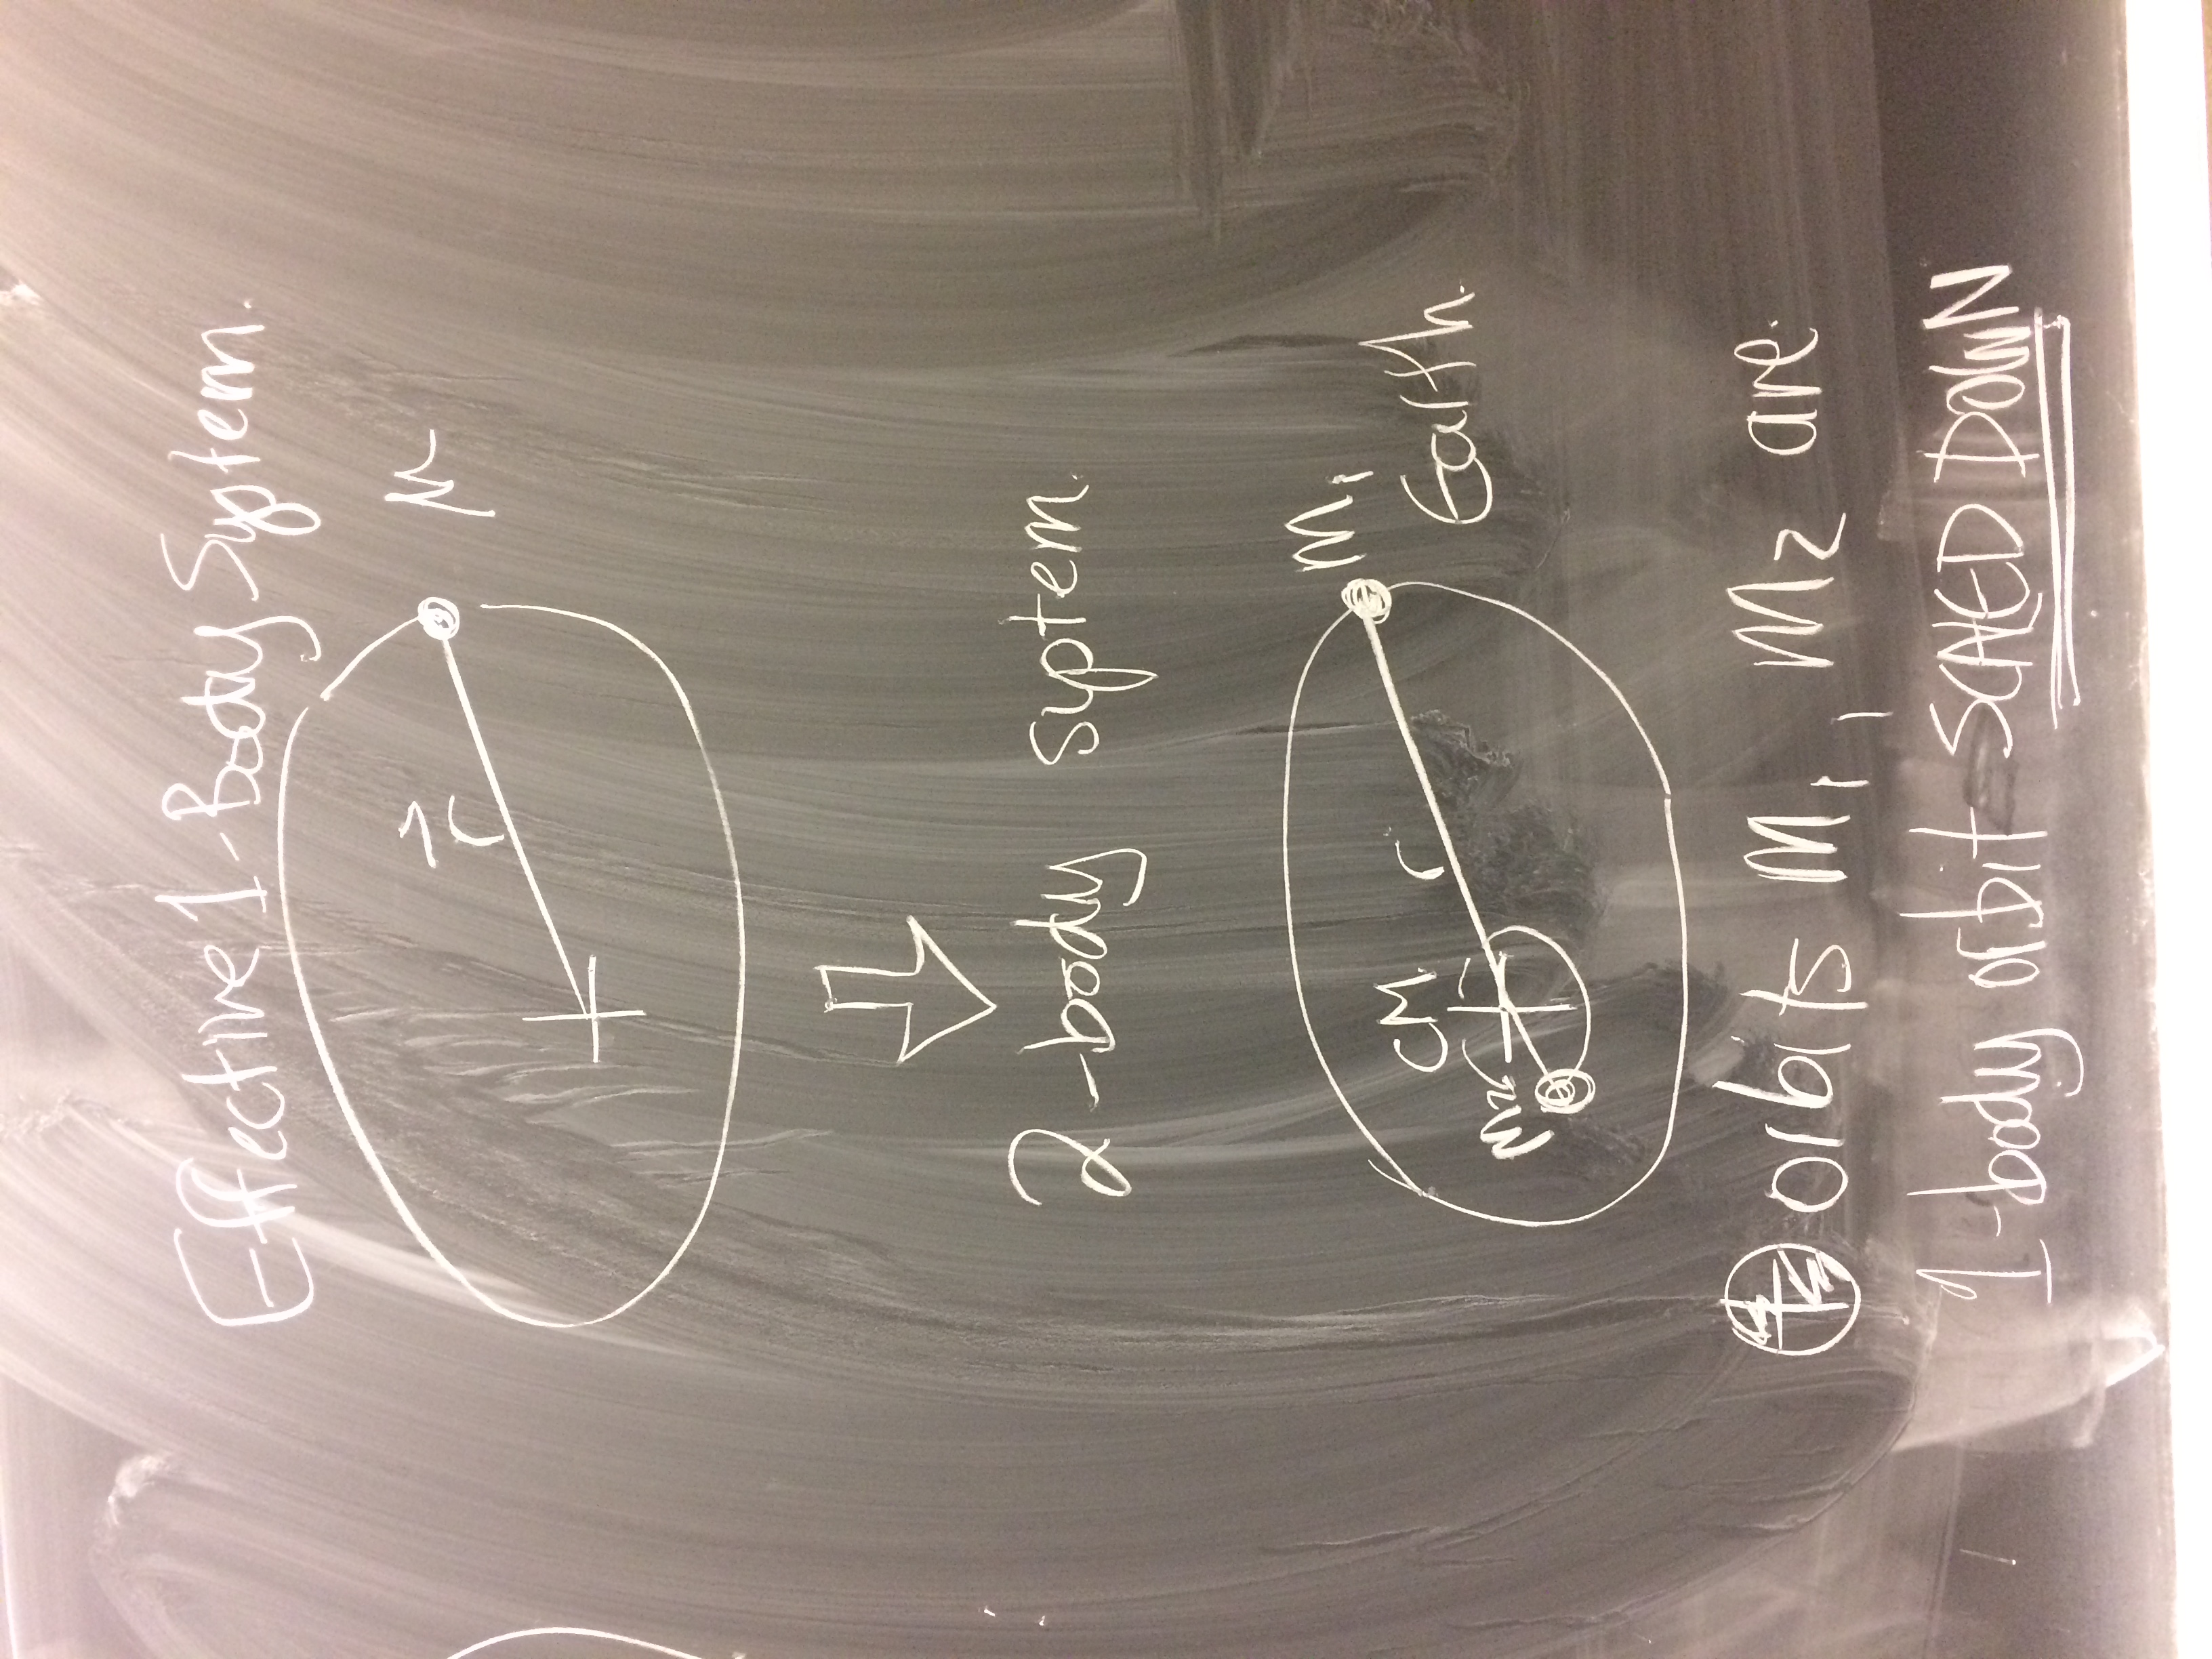 Effective 1-Body System.
μ
r
2-body system.
m1
Earth.
r
CM
m2
orbits m1, m2 are
1-body orbit SCALED DOWN